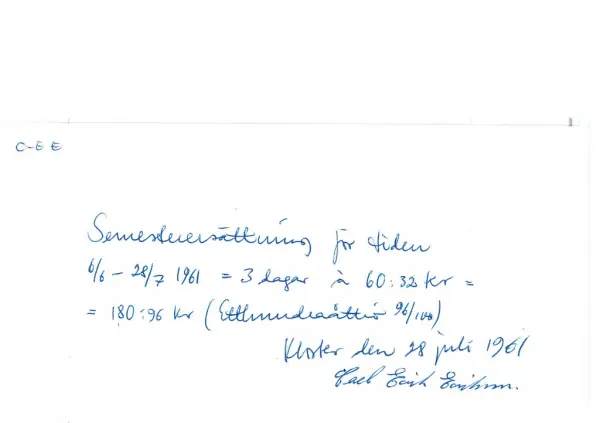 C-E E
Semesterersättning för tiden
6/6 – 28/7 1961 = 3 dagar à 60:32 kr =
= 180:96 kr (Etthundraåttio 96/100)
Kloster den 28 juli 1961
Carl Erik Erikson.